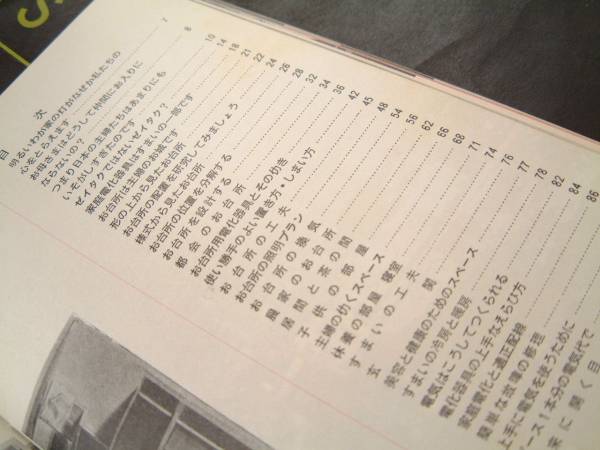 目次
明るいわが家の灯がなぜか私たちの
心をとらえます 7
お母さまはどうして仲間にお入りに
ならないの？ 8
つまり日本の主婦たちはあまりにも
いそがしすぎたのです 10
ゼイタクではないゼイタク？ 14
家庭電化器具はすまいの一部です 18
お台所は主婦のお城です 21
形の上から見たお台所 22
様式から見たお台所 24
お台所の配置を研究してみましょう 26
お台所の位置を分解する 28
お台所を設計する 32
都会のお台所 34
お台所用電化器具とその仂き 36
使い勝手のよい置き方・しまい方 42
お台所の工夫 45
お台所の照明プラン 48
お台所の換気 54
農家のお台所 56
居間と茶の間 62
子供の部屋 66
主婦の仂くスペース 68
休養の部屋 寝室 71
すまいの工夫 74
玄関 76
美容と健康のためのスペース 77
すまいの冷房と暖房 78
電気はこうしてつくられる 82
電化器具の上手なえらび方 84
家庭電化と適正配線 86
簡単な故障の修理
上手に電気を使うために
ース1本分の電気代で
来に開く目